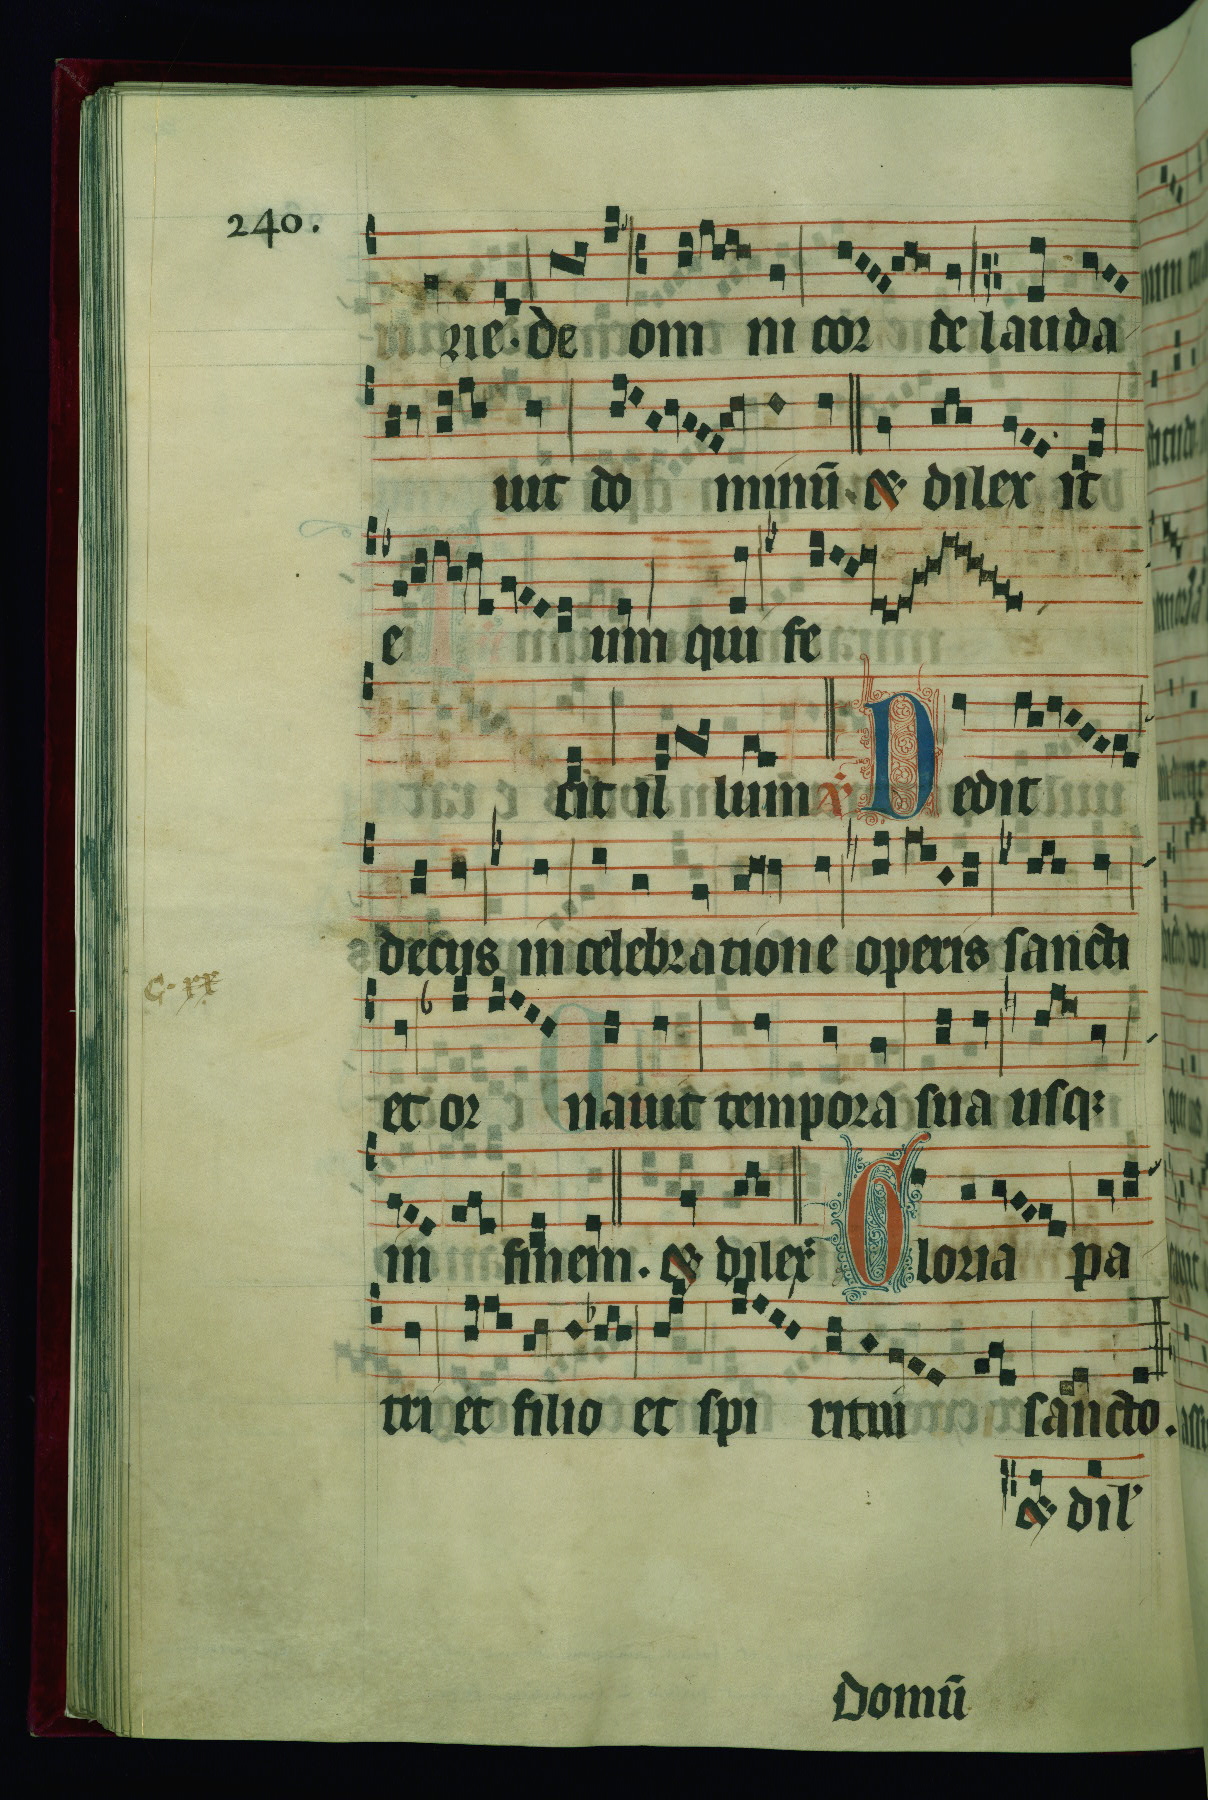 240.
rie. de om ni cor de lauda
uit do minū. & dilex it
e um qui fe
cit il lum ℣ Dedit
decus in celebratione operis sancti
C. xx
et or nauit tempora sua usq;
in finem. & dilex Gloria pa
tri et filio et spi ritui sancto.
& dil'
Domū